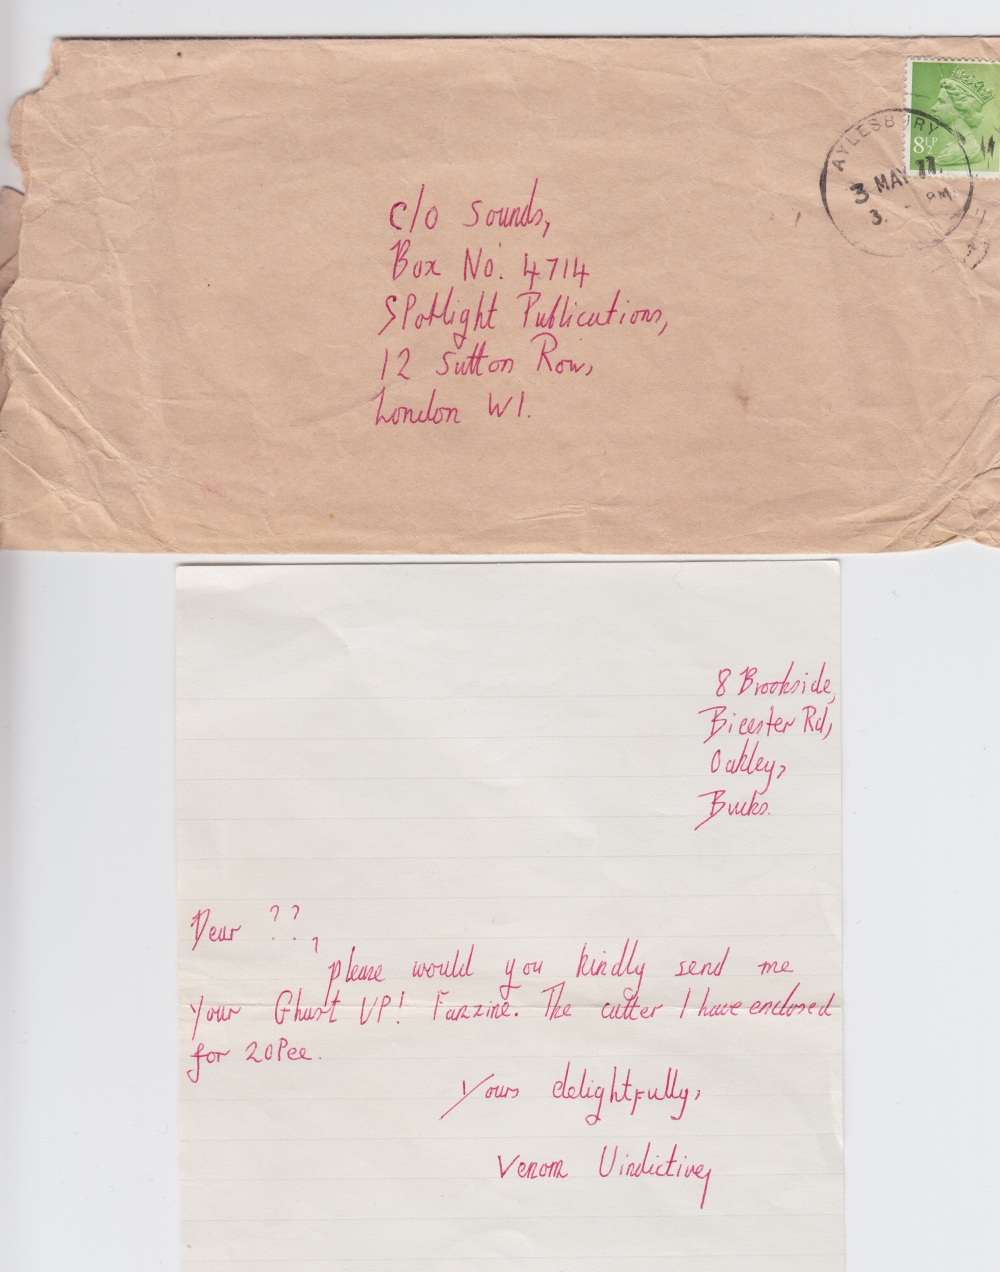 8½P
AYLESBURY
3 MAY 77
3. PM
c/o Sounds,
Box No. 4714
Spotlight Publications,
12 Sutton Row,
London W1.
8 Brookside,
Bicester Rd,
Oakley,
Bucks.
Dear ??,
please would you kindly send me
your Ghast UP! Fanzine. The cutter I have enclosed
for 20Pee.
Yours delightfully,
Venom Vindictive,